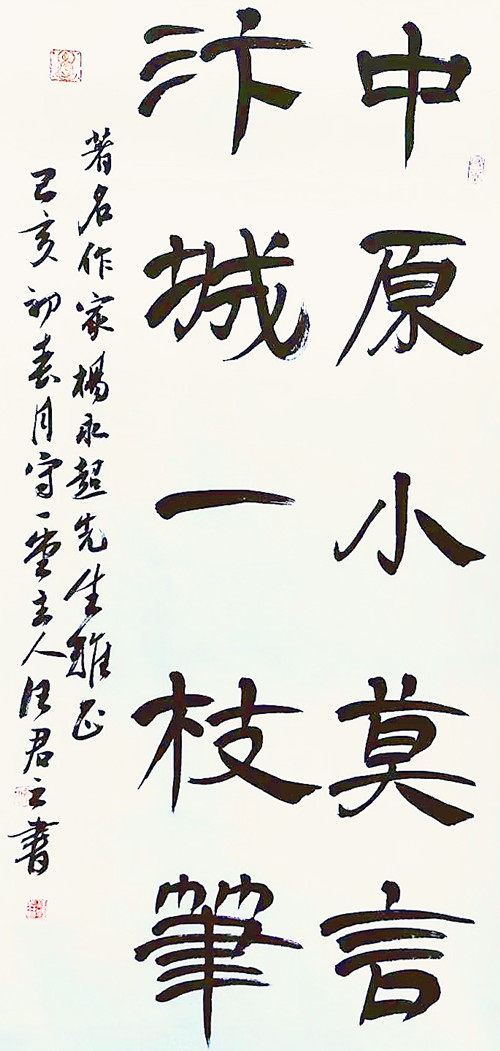 中原小莫言
汴城一枝筆
著名作家楊永超先生雅正
己亥初春月守一堂主人汪君之書